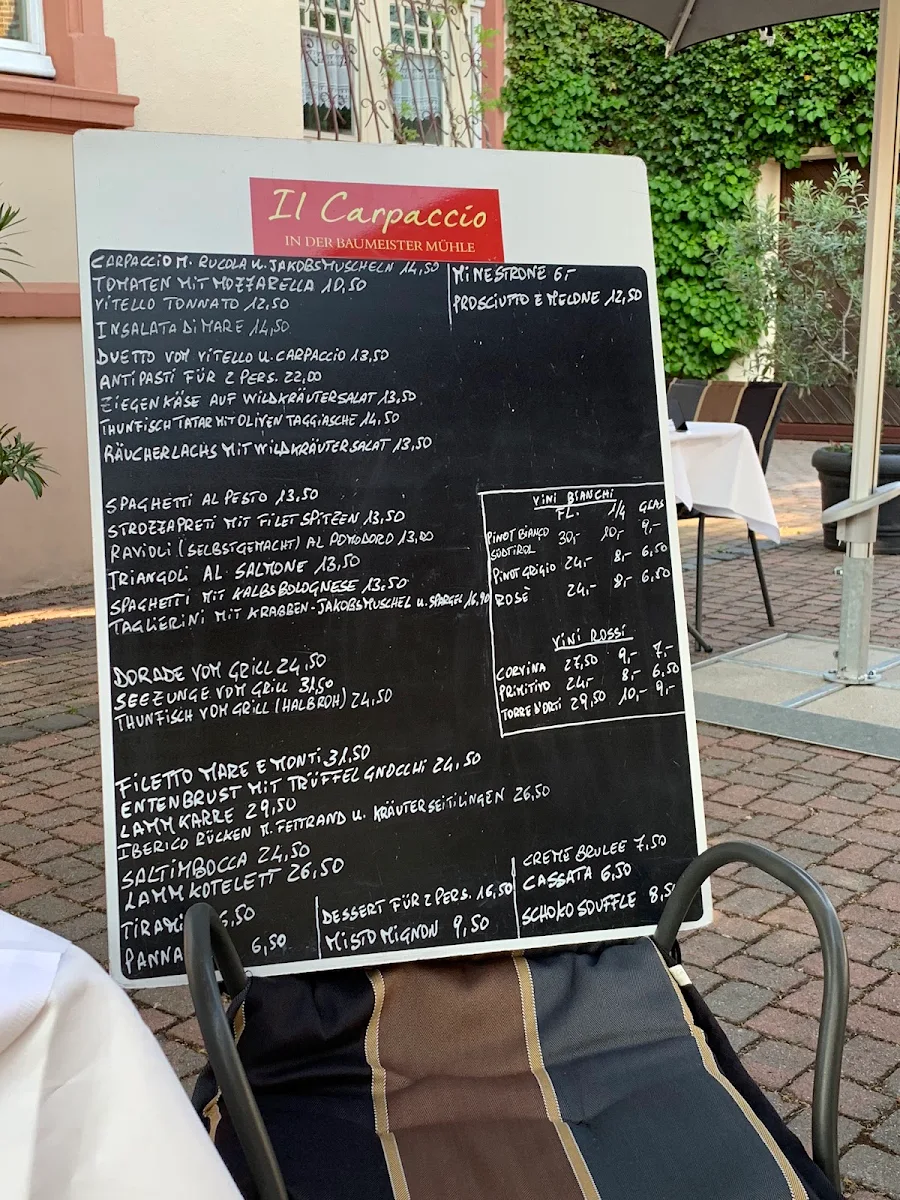 Il Carpaccio
IN DER BAUMEISTER MÜHLE
CARPACCIO M. RUCOLA U. JAKOBSMUSCHELN 14,50
TOMATEN MIT MOZZARELLA 10,50
VITELLO TONNATO 12,50
INSALATA DI MARE 14,50
MINESTRONE 6,-
PROSCIUTTO E MELONE 12,50
DUETTO VOM VITELLO U. CARPACCIO 13,50
ANTIPASTI FÜR 2 PERS. 22,00
ZIEGENKÄSE AUF WILDKRÄUTERSALAT 13,50
THUNFISCH TATAR MIT OLIVEN TAGGIASCHE 14,50
RÄUCHERLACHS MIT WILDKRÄUTERSALAT 13,50
SPAGHETTI AL PESTO 13,50
STROZZAPRETI MIT FILET SPITZEN 13,50
RAVIOLI (SELBSTGEMACHT) AL POMODORO 13,00
TRIANGOLI AL SALMONE 13,50
SPAGHETTI MIT KALBSBOLOGNESE 13,50
TAGLIERINI MIT KRABBEN-JAKOBSMUSCHEL U. SPARGEL 16,90
VINI BIANCHI
FL. 1/4 GLAS
PINOT BIANCO 30,- 10,- 9,-
SÜDTIROL
PINOT GRIGIO 24,- 8,- 6,50
ROSÈ 24,- 8,- 6,50
VINI ROSSI
CORVINA 27,50 9,- 7,-
PRIMITIVO 24,- 8,- 6,50
TORRE D'ORTI 29,50 10,- 9,-
DORADE VOM GRILL 24,50
SEEZUNGE VOM GRILL 31,50
THUNFISCH VOM GRILL (HALBROH) 24,50
FILETTO MARE E MONTI 31,50
ENTENBRUST MIT TRÜFFEL GNOCCHI 24,50
LAMMKARRE 29,50
IBERICO RÜCKEN M. FETTRAND U. KRÄUTERSEITILINGEN 26,50
SALTIMBOCCA 24,50
LAMMKOTELETT 26,50
TIRAMI 6,50
PANNA 6,50
DESSERT FÜR 2 PERS. 16,50
MISTO MIGNON 9,50
CREME BRULEE 7,50
CASSATA 6,50
SCHOKO SOUFFLE 8,5